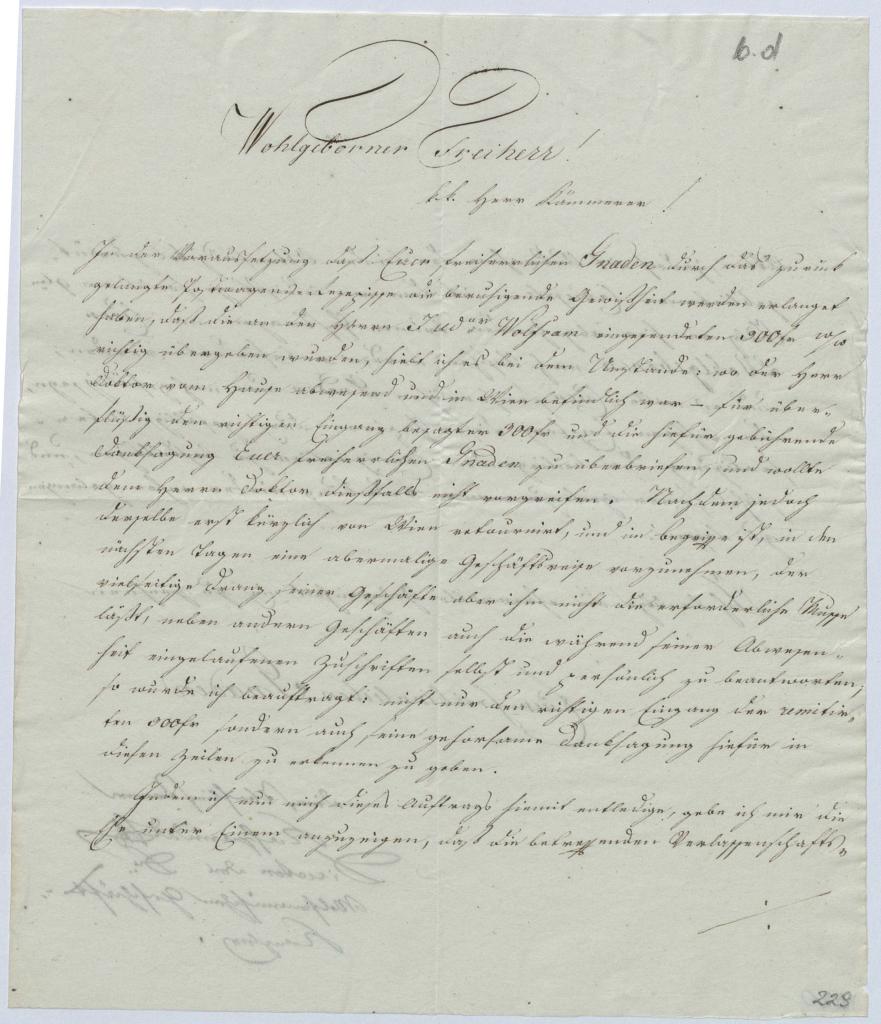 b.d
Wohlgeborner Freiherr!
k.k. Herr Kämmerer!
In der Voraussetzung daß Euer freiherrlichen Gnaden durch das zurück
gelangte Postwagens-Rezepisse die beruhigende Gewißheit werden erlanget
haben, daß die an den Herrn Jud Dor Wolfram eingesendeten 300 fr
richtig übergeben wurden, hielt ich es bei dem Umstande: wo der Herr
Doktor vom Hause abwesend und in Wien befindlich war – für über-
flüßig den richtigen Eingang besagter 300 fr und die hiefür gebührende
Danksagung Euer freiherrlichen Gnaden zu überbriefen, und wollte
dem Herrn Doktor dießfalls nicht vorgreifen. Nachdem jedoch
derselbe erst kürzlich von Wien retournirt, und im Begriffe ist, in den
nächsten Tagen eine abermalige Geschäftsreise vorzunehmen, der
vielseitige Drang seiner Geschäfte aber ihm nicht die erforderliche Musse
läßt, neben andern Geschäften auch die während seiner Abwesen-
heit eingelaufenen Zuschriften selbst und persönlich zu beantworten;
so wurde ich beauftragt: nicht nur den richtigen Eingang der remitir-
ten 300 fr sondern auch seine gehorsame Danksagung hiefür in
diesen Zeilen zu erkennen zu geben.
Indem ich nun mich dieses Auftrags hiemit entledige, gebe ich mir die
Ehre unter Einem anzuzeigen, daß die betreffenden Verlassenschafts-
223